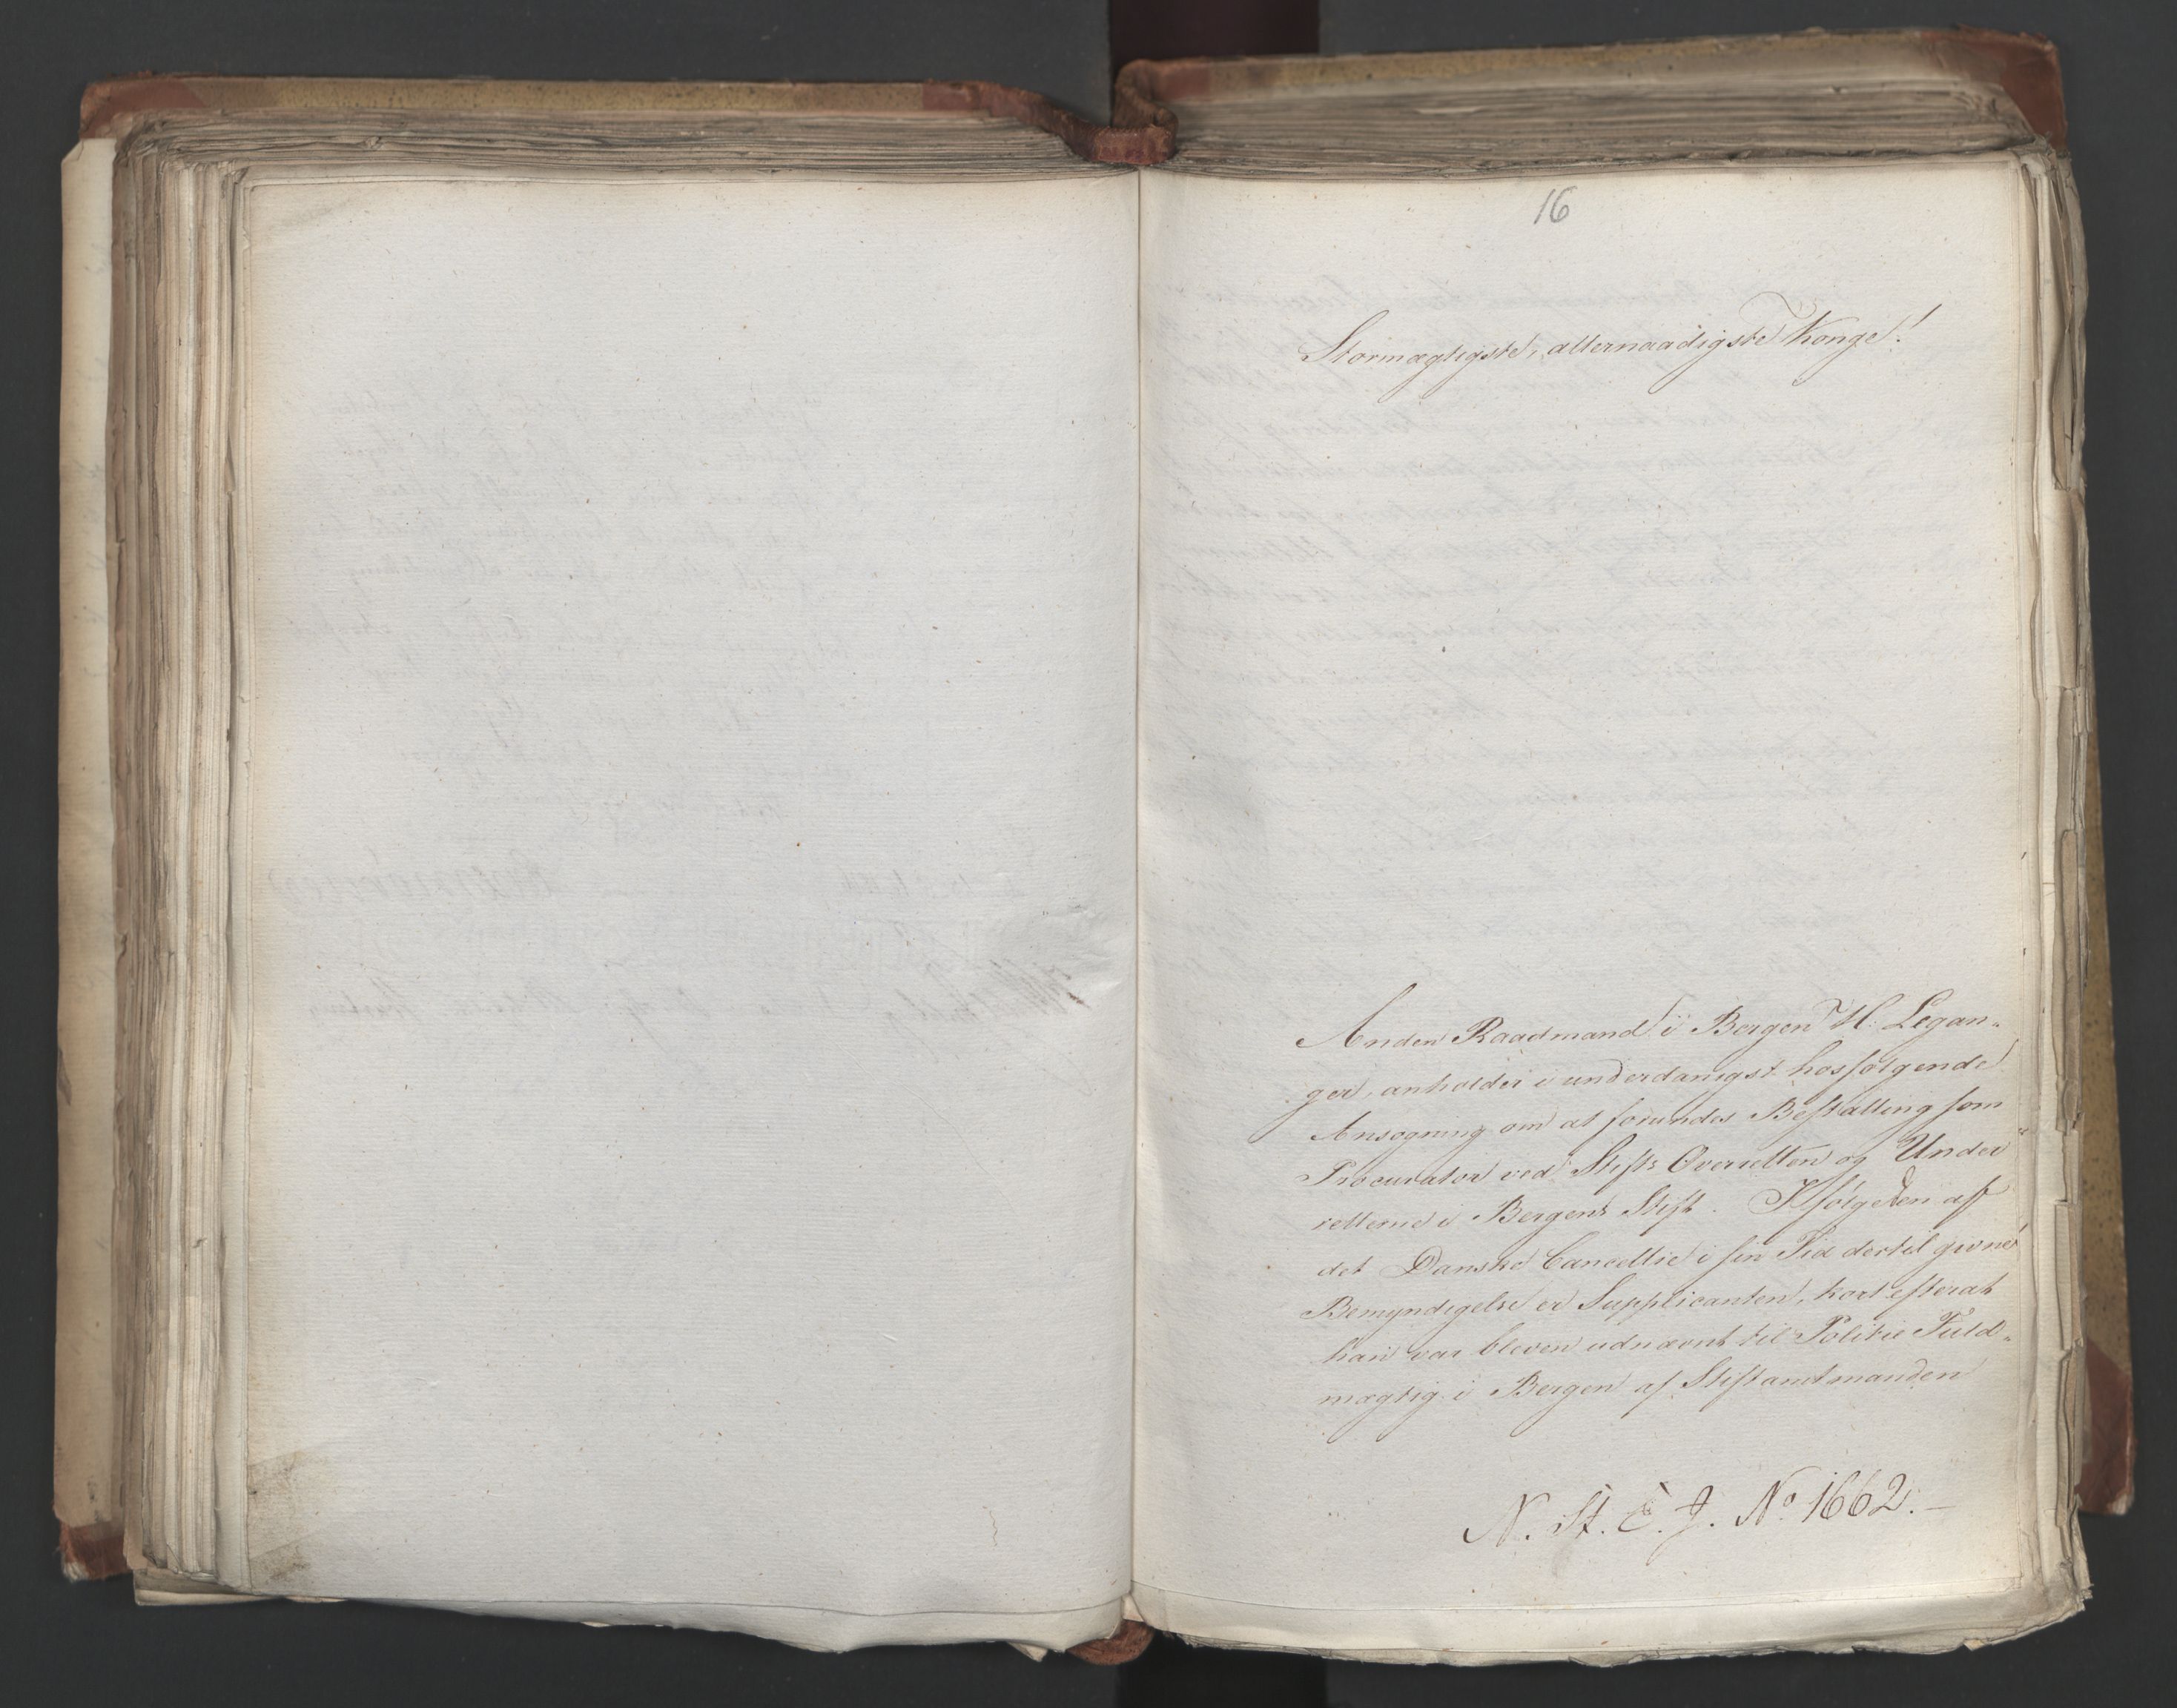 16
Stormægtigste, allernaadigste Konge!
Anden Raadmand i Bergen H: Legan„
ger, anholder i underdanigst hosfølgende
Ansøgning om at forundes Bestalling som
Procurator ved Stifts Overretten og Under
retterne i Bergens Stift. Ifølge den af
det Danske Cancellie i sin Tid dertil givne
Bemyndigelse er Supplicanten, kort efterat
han var bleven udnævnt til Politie Fuld„
mægtig i Bergen af Stiftamtmanden
N. St. C. J. No 1662.—